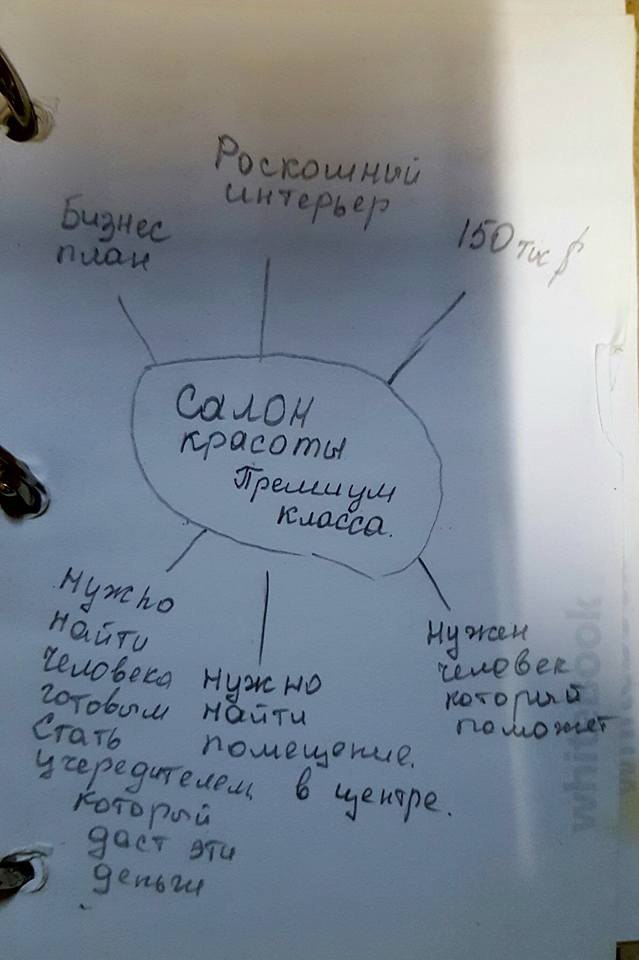 Роскошный
интерьер
Бизнес
план
150 тис $
Салон
красоты
Премиум
класса.
Нужно
найти
человека
готовым
стать
учередителем,
который
даст эти
деньги
Нужно
найти
помещение.
в центре.
Нужен
человек
который
поможет
whitebook